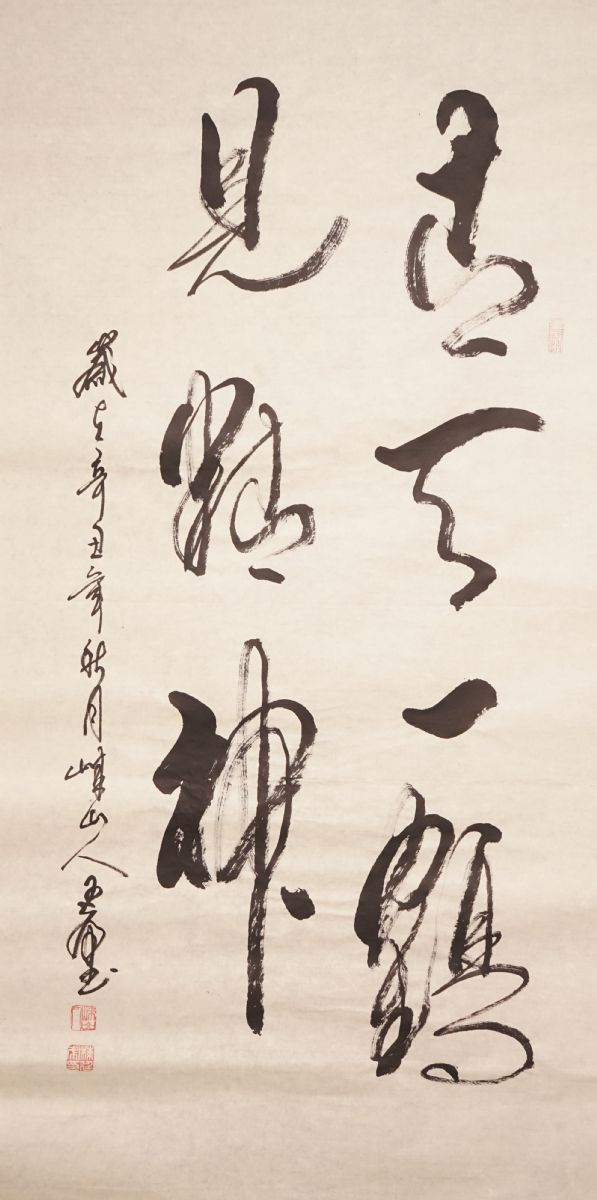 青天一鶴
見精神
歲在辛丑年秋月山人書